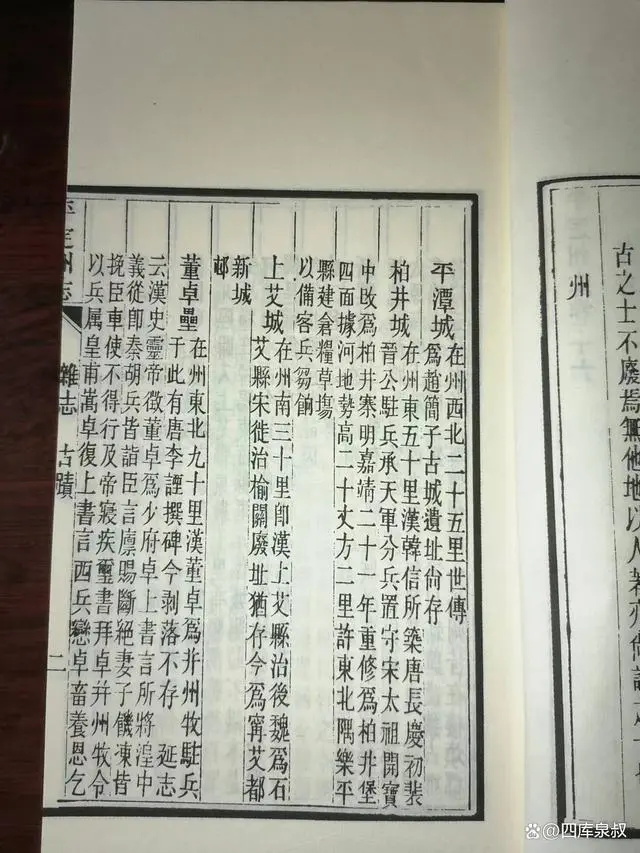 州
古之士不廢焉無他地以人著
平潭城在州西北二十五里世傳
爲趙簡子古城遺址尚存
柏井城在州東五十里漢韓信所築唐長慶初裴
晉公駐兵承天軍分兵置守宋太祖開寶
中改爲柏井寨明嘉靖二十一年重修爲柏井堡
四面據河地勢高二十丈方二里許東北隅樂平
縣建倉糧草塲
以備客兵芻餉
上艾城在州南三十里卽漢上艾縣治後魏爲石
艾縣宋徙治榆關廢址猶存今爲甯艾都
新城
邨
董卓壘在州東北九十里漢董卓爲并州牧駐兵
于此有唐李諲撰碑今剥落不存 延志
云漢史靈帝徵董卓爲少府卓上書言所將湟中
義從卽秦胡兵皆詣臣言廪賜斷絕妻子饑凍皆
挽臣車使不得行及帝寢疾璽書拜卓并州牧令
以兵属皇甫嵩卓復上書言西兵戀卓畜養恩乞
平定州志 雜志 古蹟 二
@四库泉叔